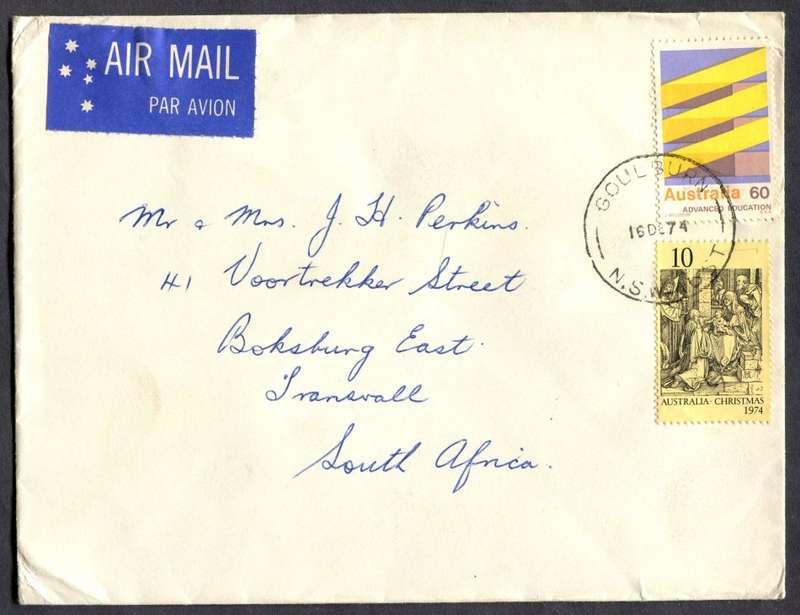 AIR MAIL
PAR AVION
Australia 60
ADVANCED EDUCATION
GOULBURN
16DE74
N.S.W.
10
AUSTRALIA · CHRISTMAS
1974
Mr & Mrs. J. H. Perkins.
41 Voortrekker Street
Boksburg East.
Transvall
South Africa.